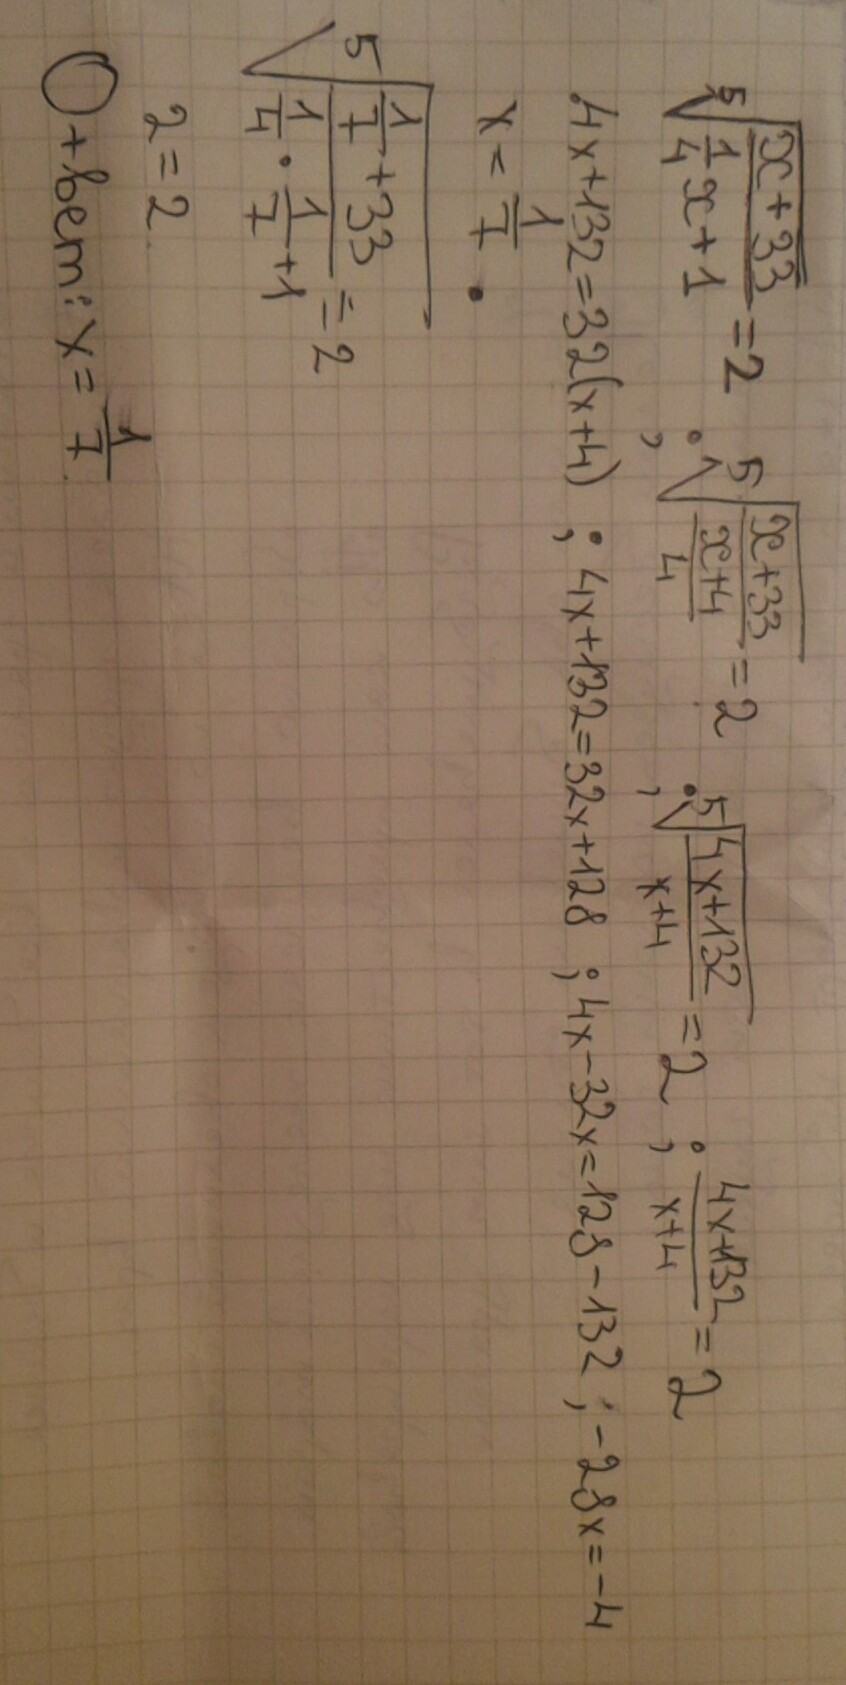 ⁵√((x+33)/(1/4 x+1)) = 2 ; ⁵√((x+33)/((x+4)/4)) = 2 ; ⁵√((4x+132)/(x+4)) = 2 ; (4x+132)/(x+4) = 2
4x+132=32(x+4) ; 4x+132=32x+128 ; 4x-32x=128-132 ; -28x=-4
x = 1/7 .
⁵√((1/7+33)/(1/4 · 1/7+1)) = 2
2=2
Ответ: x = 1/7